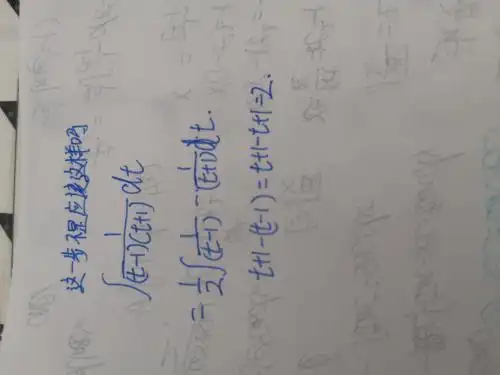 这一步不是应该这样吗
∫ 1/((t-1)(t+1)) dt
= 1/2 ∫ 1/(t-1) - 1/(t+1) dt.
t+1-(t-1)=t+1-t+1=2.